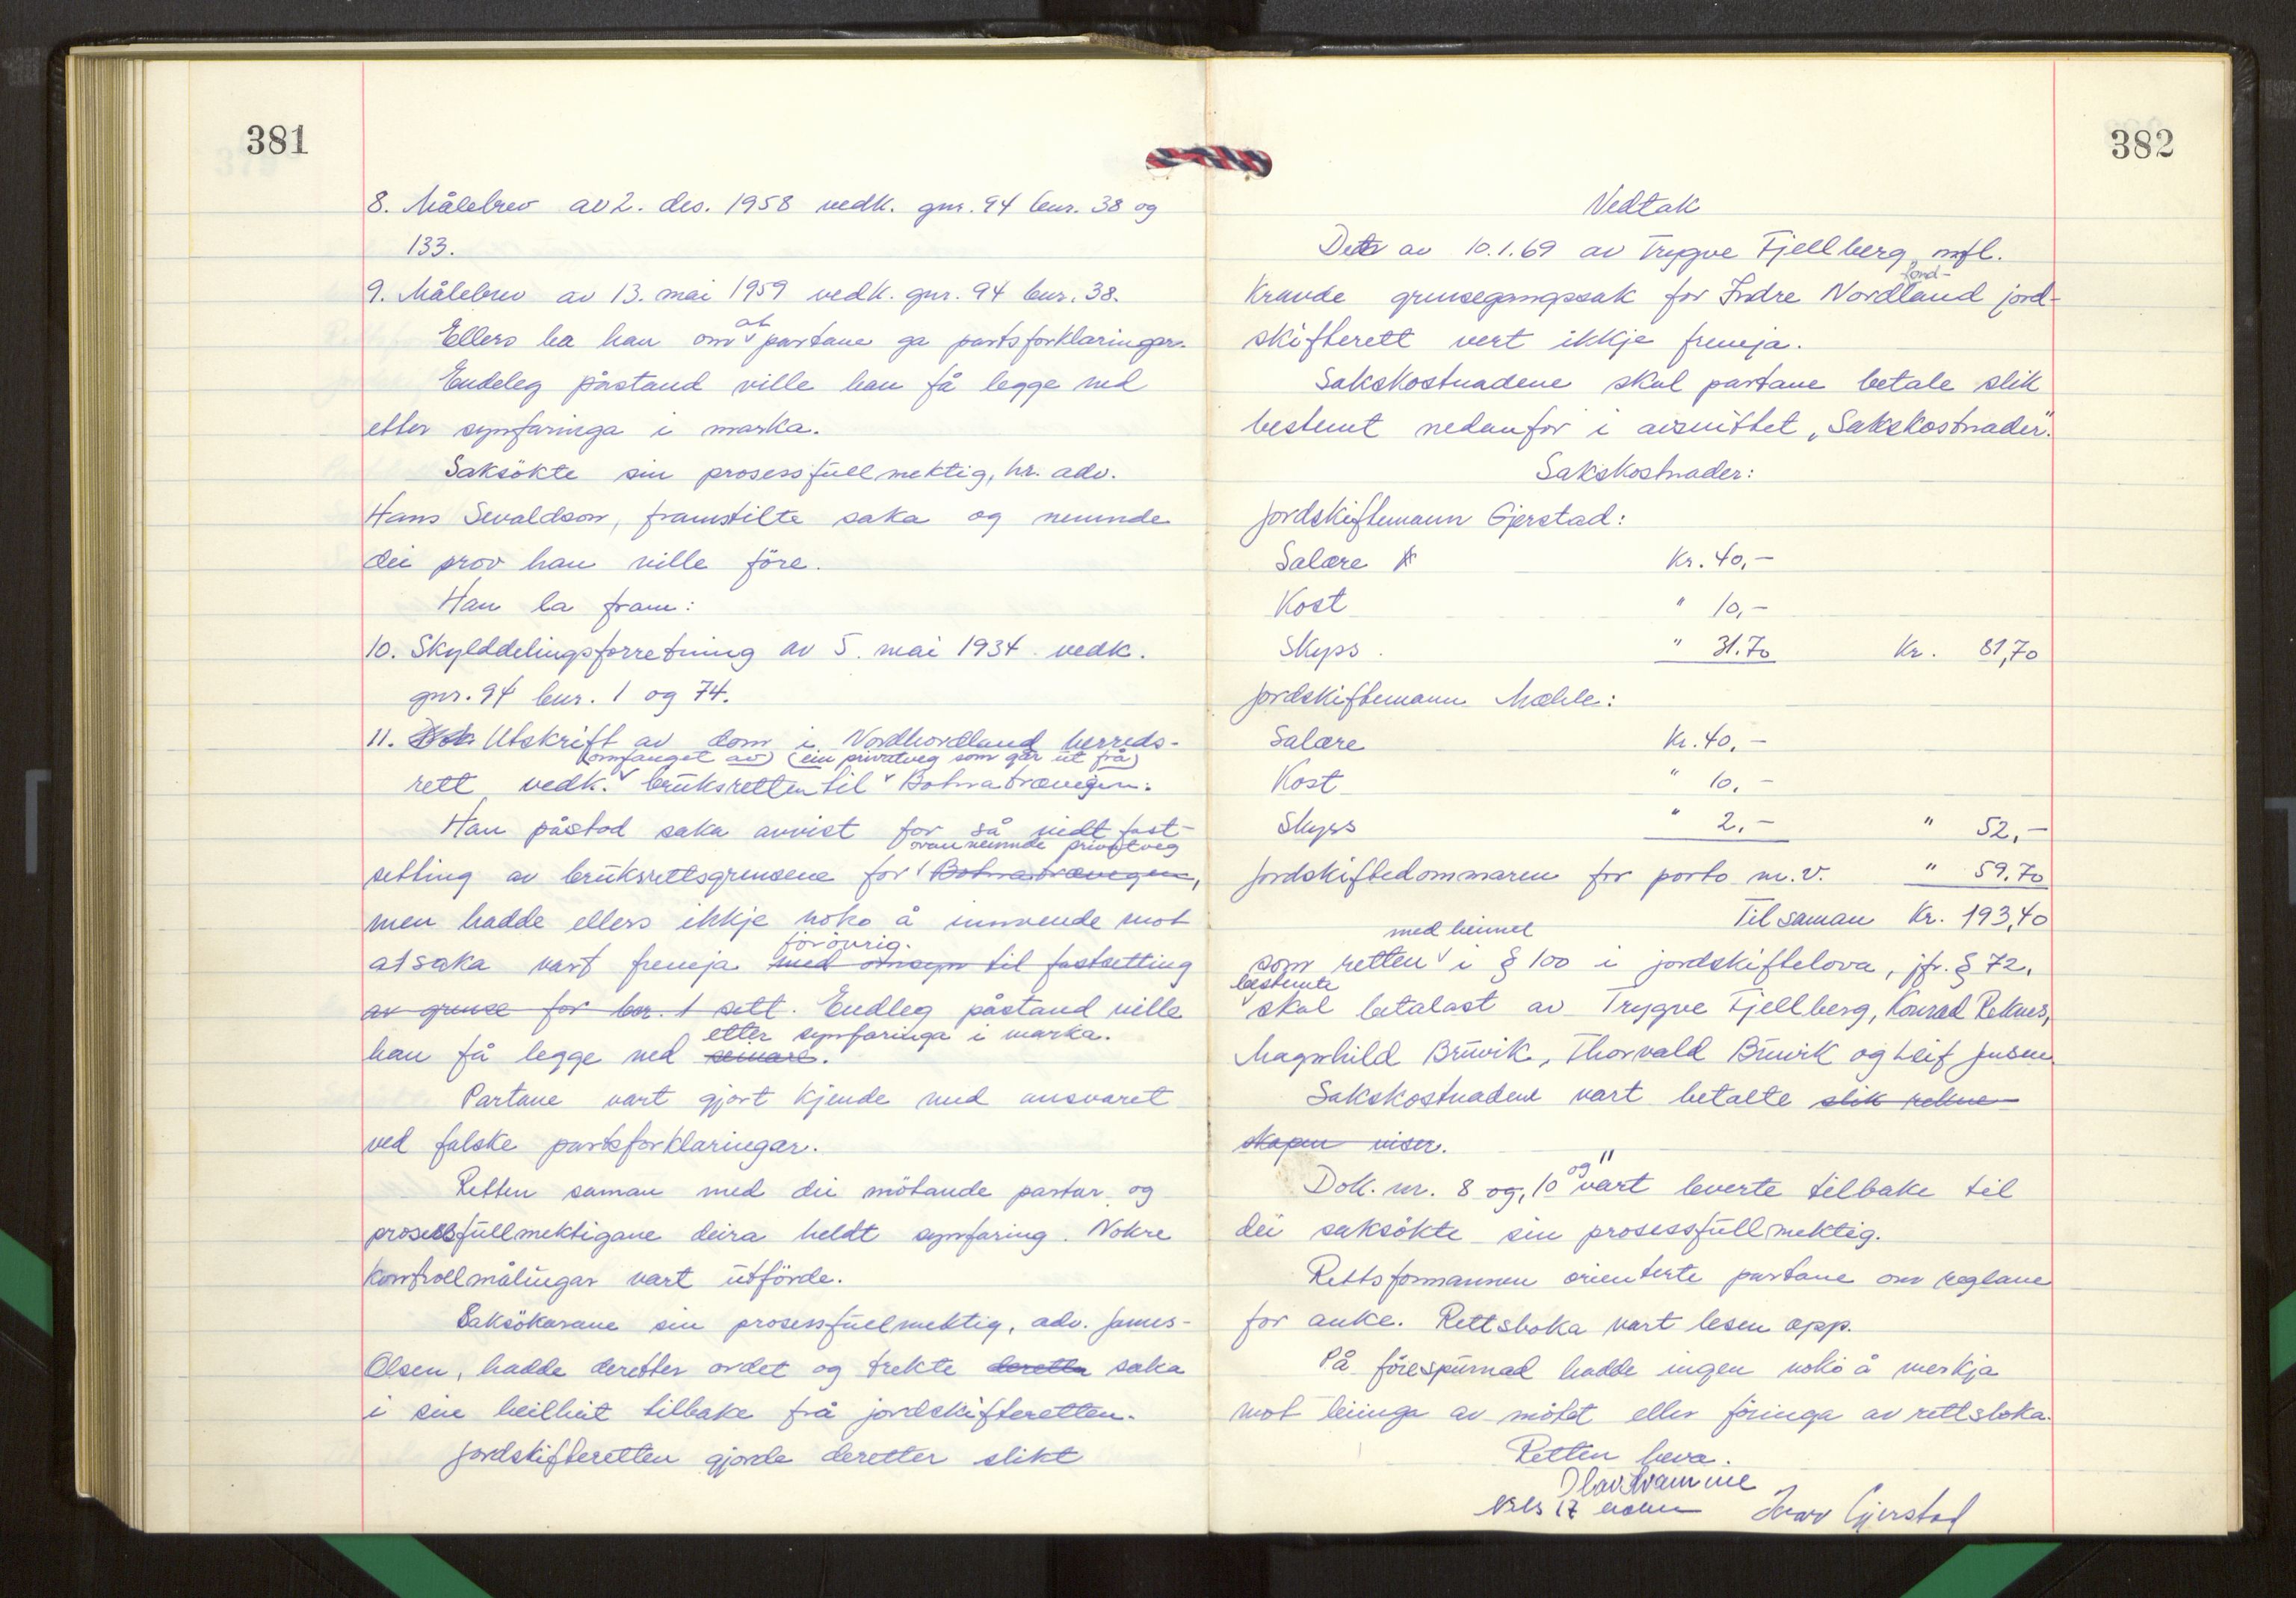 381
8. Målebrev av 2. des. 1958 vedk. gnr. 94 bnr. 38 og
133.
9. Målebrev av 13. mai 1959 vedk. gnr. 94 bnr. 38.
Ellers ba han om at partane ga partsforklaringar.
Endeleg påstand ville han få legge ned
etter synfaringa i marka.
Saksökte sin prosessfullmektig, hr. adv.
Hans Sevaldson, framstilte saka og nemnde
dei prov han ville före.
Han la fram:
10. Skylddelingsforretning av 5. mai 1934 vedk.
gnr. 94 bnr. 1 og 74.
11. Utskrift av dom i Nordhordland herreds-
(omfanget av) (ein privatveg som går ut frå)
rett vedk. bruksretten til Botnatrævegen.
Han påstod saka avvist for så vidt fast-
ovannemnde privatveg
setting av bruksrettsgrensene for Botnatrævegen,
men hadde ellers ikkje noko å innvende mot
forövrig.
at saka vart fremja med omsyn til fastsetting
av grense for bnr. 1 sett. Endleg påstand ville
etter synfaringa i marka.
han få legge ned seinare.
Partane vart gjort kjende med ansvaret
ved falske partsforklaringar.
Retten saman med dei mötande partar og
prosessfullmektigane deira heldt synfaring. Nokre
kontrollmålingar vart utförde.
Saksökarane sin prosessfullmektig, adv. James-
Olsen, hadde deretter ordet og trekte deretter saka
i sin heilheit tilbake frå jordskifteretten.
Jordskifteretten gjorde deretter slikt
382
Vedtak
Den av 10.1.69 av Trygve Fjellberg mfl.
fjord-
Kravde grensegangssak for Indre Nordland jord-
skifterett vert ikkje fremja.
Sakskostnadene skal partane betale slik
bestemt nedanfor i avsnittet „Sakskostnader".
Sakskostnader:
Jordskiftemann Gjerstad:
Salære Kr. 40,-
Kost " 10,-
Skyss " 31.70 Kr. 81,70
Jordskiftemann Mæhle:
Salære Kr. 40,-
Kost " 10,-
Skyss " 2,- " 52,-
Jordskiftedommaren for porto m.v. " 59.70
Til saman Kr. 193,40
med heimel
som retten i § 100 i jordskiftelova, jfr. § 72,
bestemte
skal betalast av Trygve Fjellberg, Konrad Reknes,
Magnhild Bruvik, Thorvald Bruvik og Leif Jensen.
Sakskostnadene vart betalte slik rekne-
skapen viser.
og 11
Dok. nr. 8 og, 10 vart leverte tilbake til
dei saksökte sin prosessfullmektig.
Rettsformannen orienterte partane om reglane
for anke. Rettsboka vart lesen opp.
På förespurnad hadde ingen noko å merkja
mot leiinga av mötet eller föringa av rettsboka.
Retten heva.
Olav Kvamme
Ivar Gjerstad